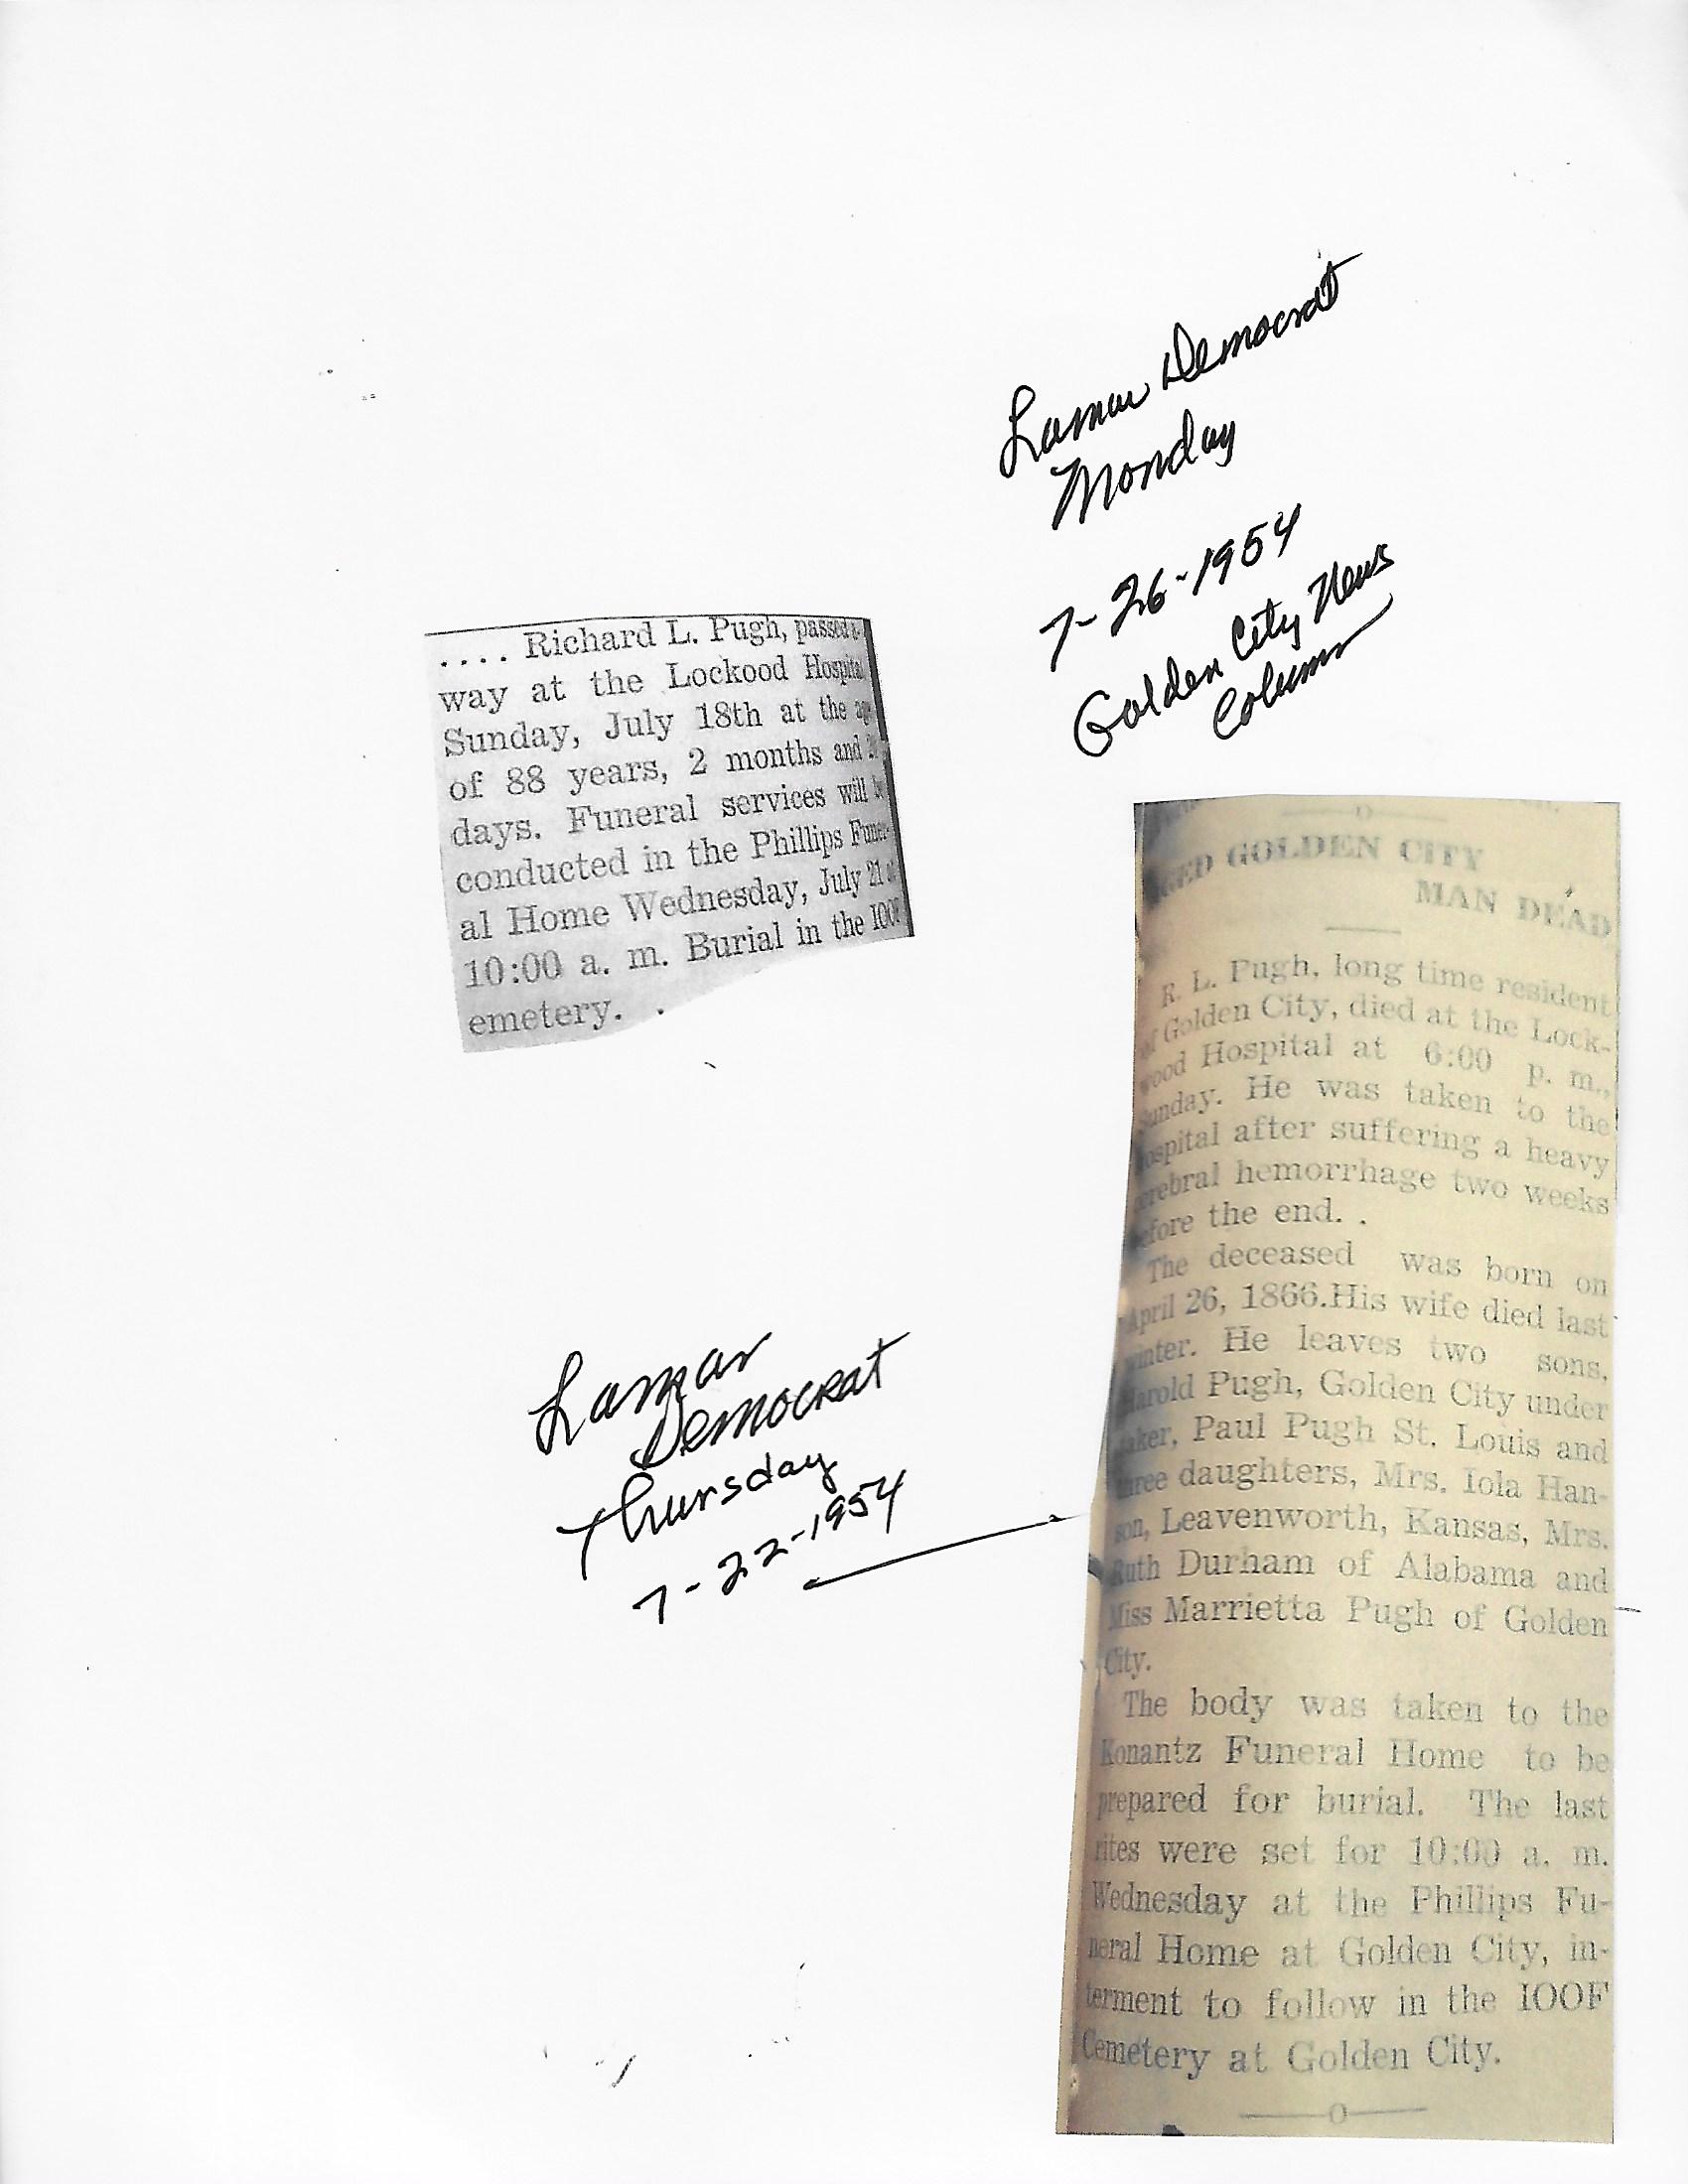 Lamar Democrat
Monday
7-26-1954
Golden City News
Column
.... Richard L. Pugh, passed a-
way at the Lockood Hospital
Sunday, July 18th at the age
of 88 years, 2 months and
days. Funeral services will be
conducted in the Phillips Funer-
al Home Wednesday, July 21 at
10:00 a. m. Burial in the IOOF
emetery. .
GED GOLDEN CITY
MAN DEAD
R. L. Pugh, long time resident
of Golden City, died at the Lock-
wood Hospital at 6:00 p. m.,
Sunday. He was taken to the
ospital after suffering a heavy
erebral hemorrhage two weeks
efore the end. .
The deceased was born on
April 26, 1866.His wife died last
winter. He leaves two sons,
Harold Pugh, Golden City under
taker, Paul Pugh St. Louis and
three daughters, Mrs. Iola Han-
son, Leavenworth, Kansas, Mrs.
Ruth Durham of Alabama and
Miss Marrietta Pugh of Golden
City.
The body was taken to the
Konantz Funeral Home to be
prepared for burial. The last
rites were set for 10:00 a. m.
Wednesday at the Phillips Fu-
neral Home at Golden City, in-
terment to follow in the IOOF
Cemetery at Golden City.
Lamar
Democrat
Thursday
7-22-1954